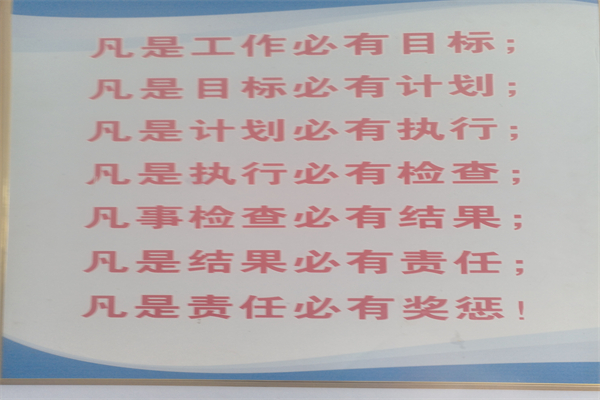 凡是工作必有目标；
凡是目标必有计划；
凡是计划必有执行；
凡是执行必有检查；
凡事检查必有结果；
凡是结果必有责任；
凡是责任必有奖惩！